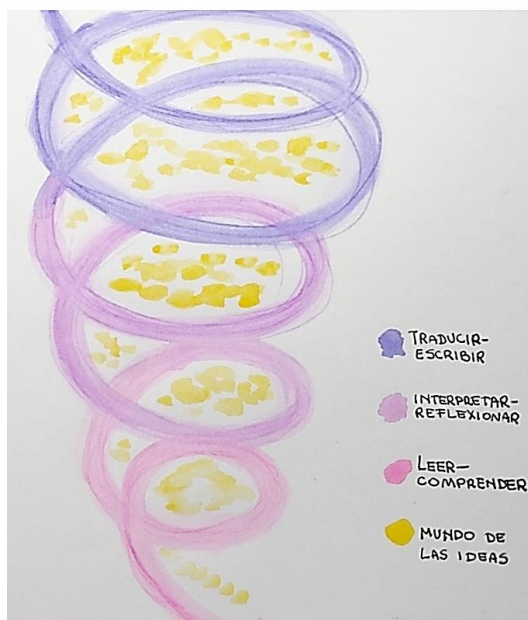 TRADUCIR-
ESCRIBIR
INTERPRETAR-
REFLEXIONAR
LEER-
COMPRENDER
MUNDO DE
LAS IDEAS